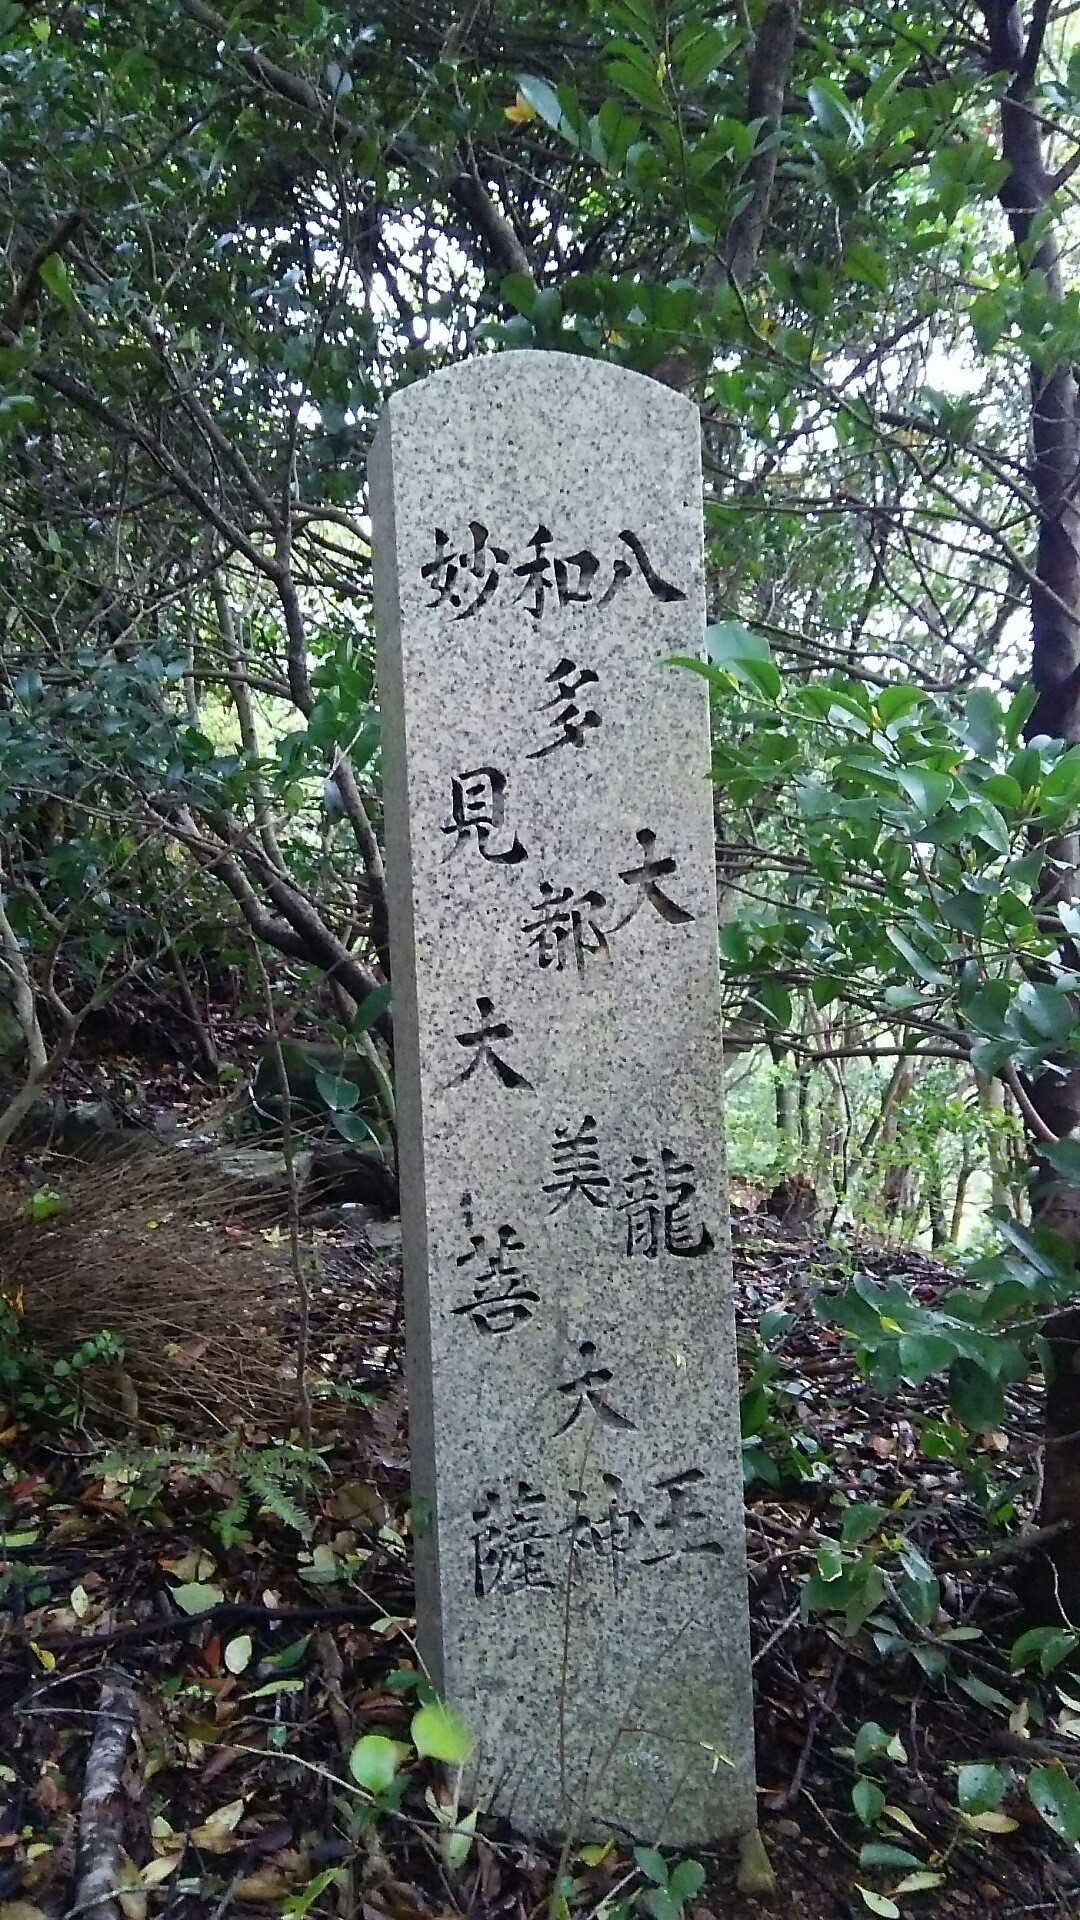 八大龍王
和多都美大神
妙見大菩薩